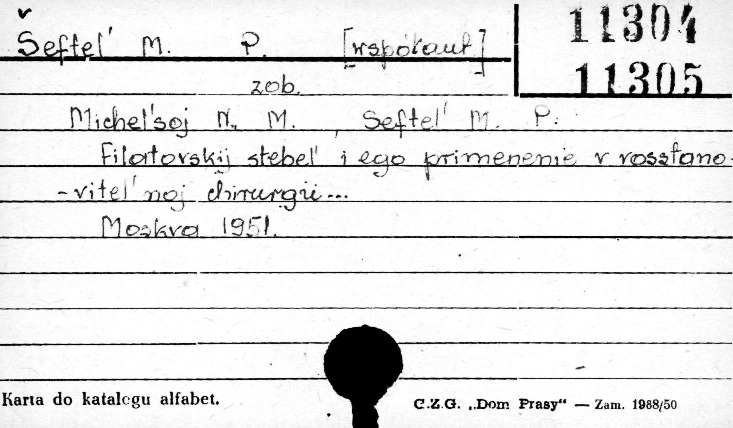 Šeftel' M. P. [współaut]
11304
11305
zob.
Michel'soj N. M., Šeftel' M. P.
Filatovskij stebel' i ego primenenie v vosstano-
-vitel'noj chirurgii...
Moskva 1951.
Karta do katalogu alfabet.
C.Z.G. „Dom Prasy“ — Zam. 1988/50